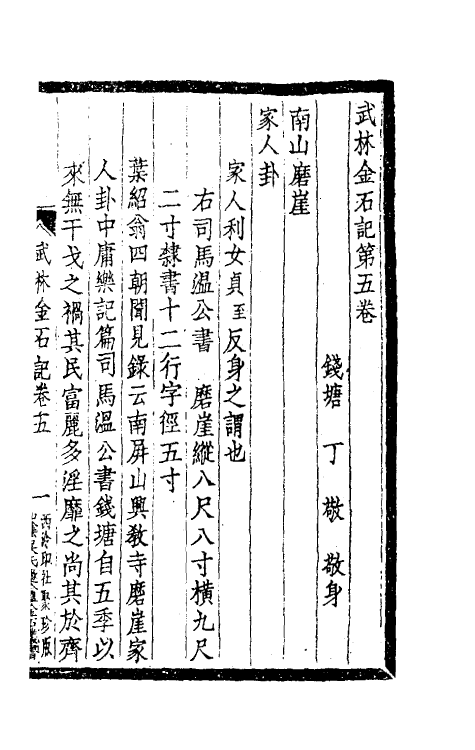 武林金石記第五卷
錢塘 丁 敬 敬身
南山磨崖
家人卦
家人利女貞至反身之謂也
右司馬溫公書 磨崖縱八尺八寸橫九尺
二寸隸書十二行字徑五寸
葉紹翁四朝聞見錄云南屏山興敎寺磨崖家
人卦中庸樂記篇司馬溫公書錢塘自五季以
來無干戈之禍其民富麗多淫靡之尚其於齊
武林金石記卷五
一
西泠印社聚珍版